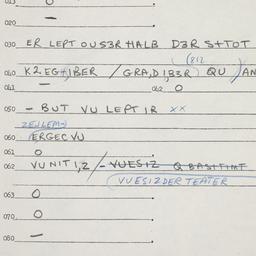 013 O
020 —
030 ER LEPT OUS3R HALB D3R S+TOT
(812
040 K2EG+IBER / GRA,DIB3R) QU / AN
041 — 042 O
050 - BUT VU LEPT IR xx
060 IERGEC VU
061 O
062 VU NIT 1,2 / - VUESIZ Q BASTIMT
(VUESIZ DER TEATER
063 O
070 O
080 —